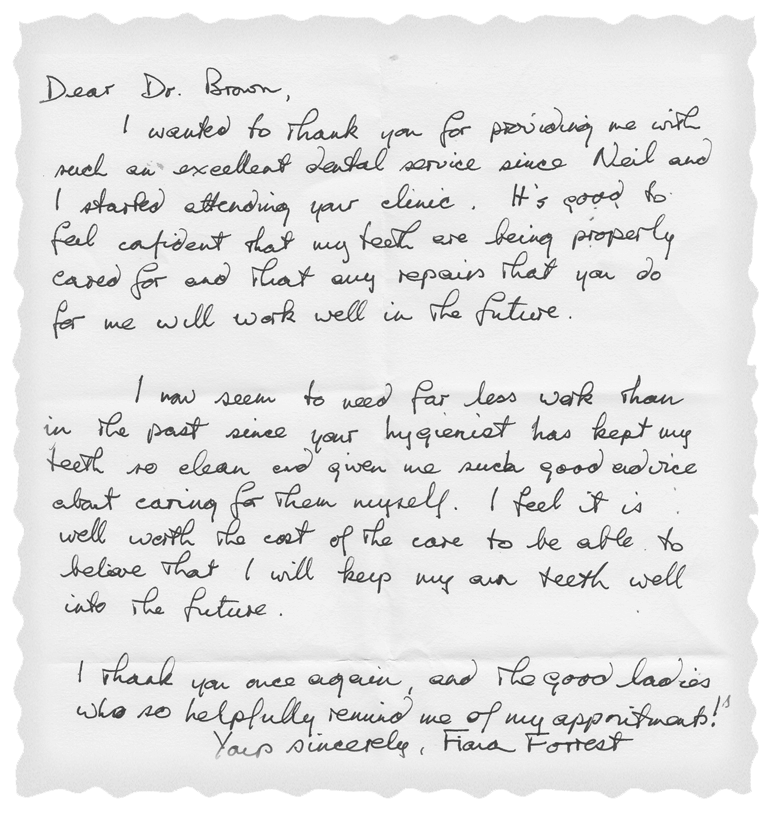 Dear Dr. Brown,
I wanted to thank you for providing me with
such an excellent dental service since Neil and
I started attending your clinic. It's good to
feel cofident that my teeth are being properly
cared for and that any repairs that you do
for me will work well in the future.
I now seem to need far less work than
in the past since your hygienist has kept my
teeth so clean and given me such good advice
about caring for them myself. I feel it is
well worth the cost of the care to be able to
believe that I will keep my own teeth well
into the future.
I thank you once again, and the good ladies
who so helpfully remind me of my appointments!
Yours sincerely, Fiona Forrest